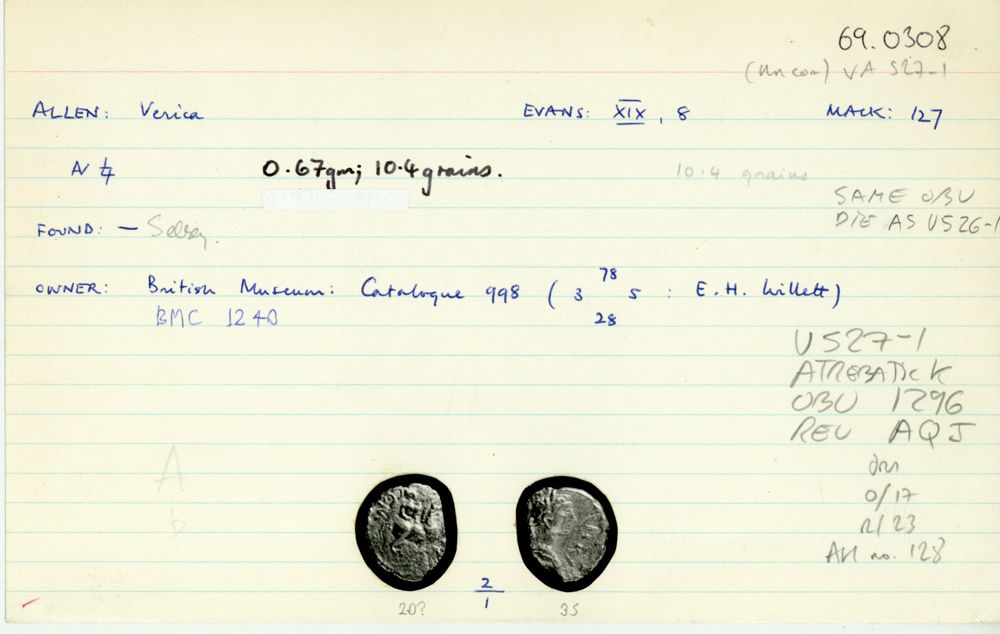 69.0308
(Un com) VA 527-1
ALLEN: Verica EVANS: XIX, 8 MACK: 127
AV 1/4 0.67gm; 10.4 grains. 10.4 grains
SAME OBV
DIE AS V526-1
FOUND: — Selsey.
OWNER: British Museum: Catalogue 998 (3 78/28 5 : E.H. Willett)
BMC 1240
V527-1
ATREBATIC K
OBV 1296
REV AQJ
A
b
die
o/17
r/23
AH no. 128
2/1
20? 35